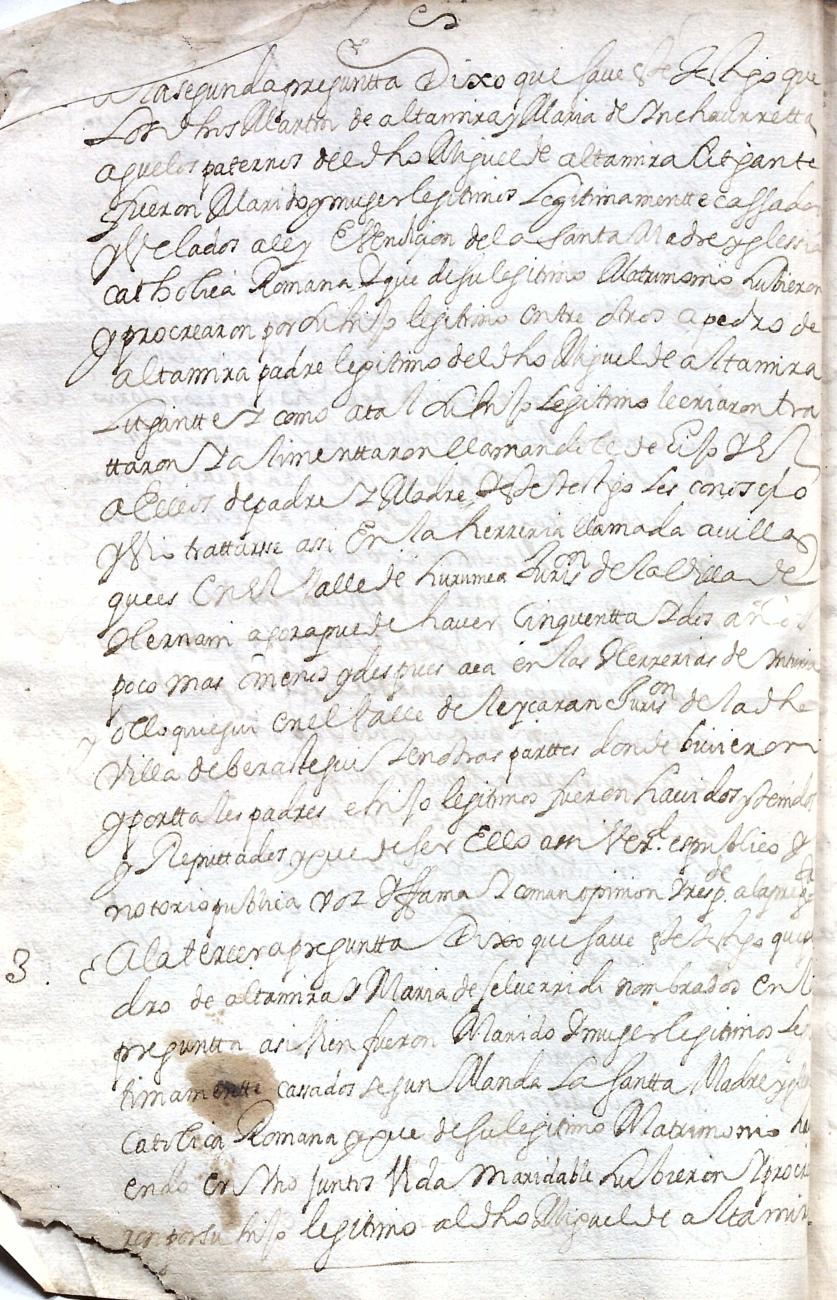 A la segunda preguntta Dixo que save este testigo que
Los dhos Martin de altamira y Maria de Inchaurretta
aguelos paternos del dho Miguel de altamira Litigante
fueron Marido y muger legitimos Legitimamentte cassados
y Velados a ley Vendicion de la Santa Madre yglessia
catholica Romana y que de su legitimo Matrimonio hubieron
y procrearon por su hijo legitimo entre otros a pedro de
altamira padre legitimo del dho Miguel de altamira
Litigantte y como a tal su hijo Legitimo le criaron tra
ttaron y alimenttaron llamandole de hijo y el
a ellos de padre y Madre y este testigo les conoscio
y Vio trattarsse assi En la herreria llamada avilla
que es En el Valle de hurumea Jurison de la Villa de
Hernani agora puede haver Cinquentta y dos años
poco mas o menos y despues aca en las Herrerias de
olloquegui en el Valle de leyçaran Jurison de la dha
Villa de berastegui y en otras parttes donde bivieron
y por ttales padres e hijo legitimos fueron havidos y tenidos
y Reputtados y que de ser Ello assi Verd. es publico y
notorio publica voz y fama y comun opinion y respde a la preg
3. A la tercera preguntta Dixo que save este testigo que pe
dro de altamira y Maria de nombrados en la
preguntta asi bien fueron Marido y muger legitimos Le
timamentte cassados segun Manda La Santta Madre ygle
Catolica Romana y que de su legitimo Matrimonio
endo en Uno Juntos Vida maridable hubieron y procre
ron por su hijo legitimo al dho Miguel de altamir